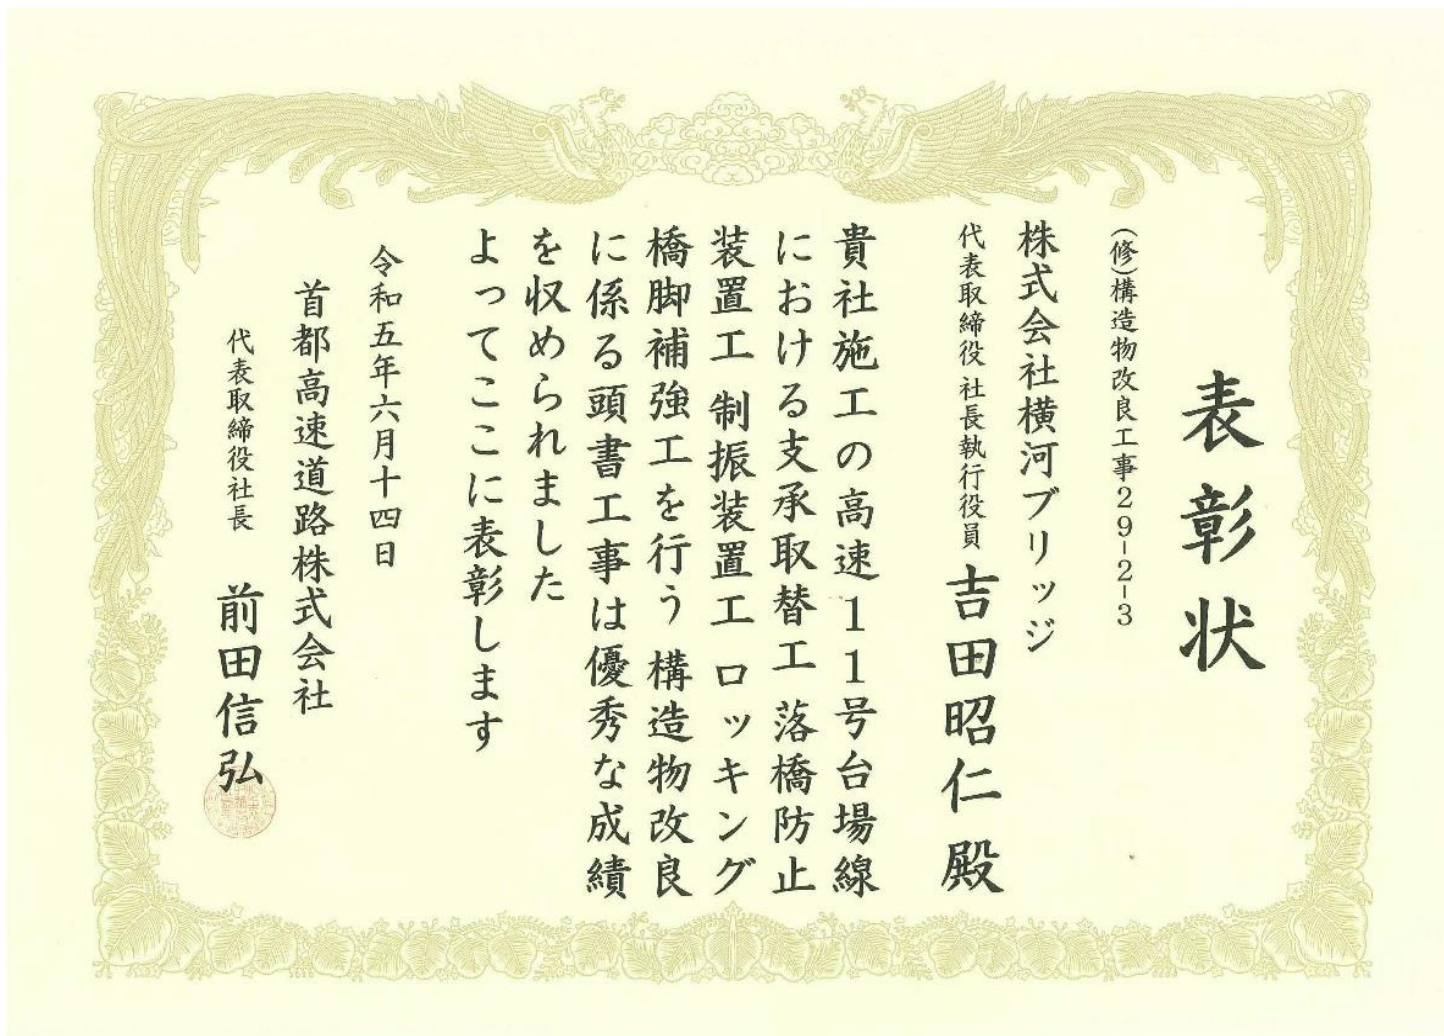 表彰状
(修)構造物改良工事29-2-3
株式会社横河ブリッジ
代表取締役 社長執行役員 吉田昭仁殿
貴社施工の高速11号台場線
における支承取替工 落橋防止
装置工 制振装置工 ロッキング
橋脚補強工を行う 構造物改良
に係る頭書工事は優秀な成績
を収められました
よってここに表彰します
令和五年六月十四日
首都高速道路株式会社
代表取締役社長 前田信弘